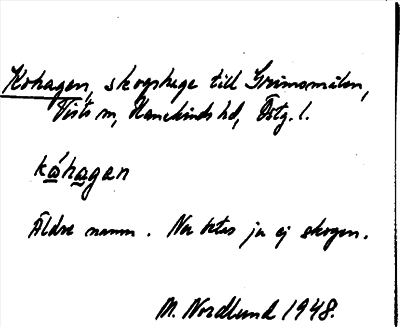 Kohagen, skogshage till Grimsmålen,
Vists sn, Hanekinds hd, Östg. l.
kåhagan
Äldre namn. Nu betas ju ej skogen.
M. Nordlund 1948.